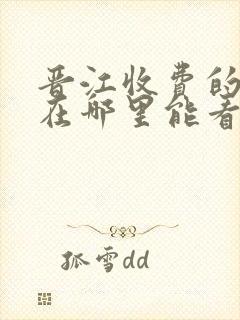 晋江收费的
在哪里能看
孤雪dd